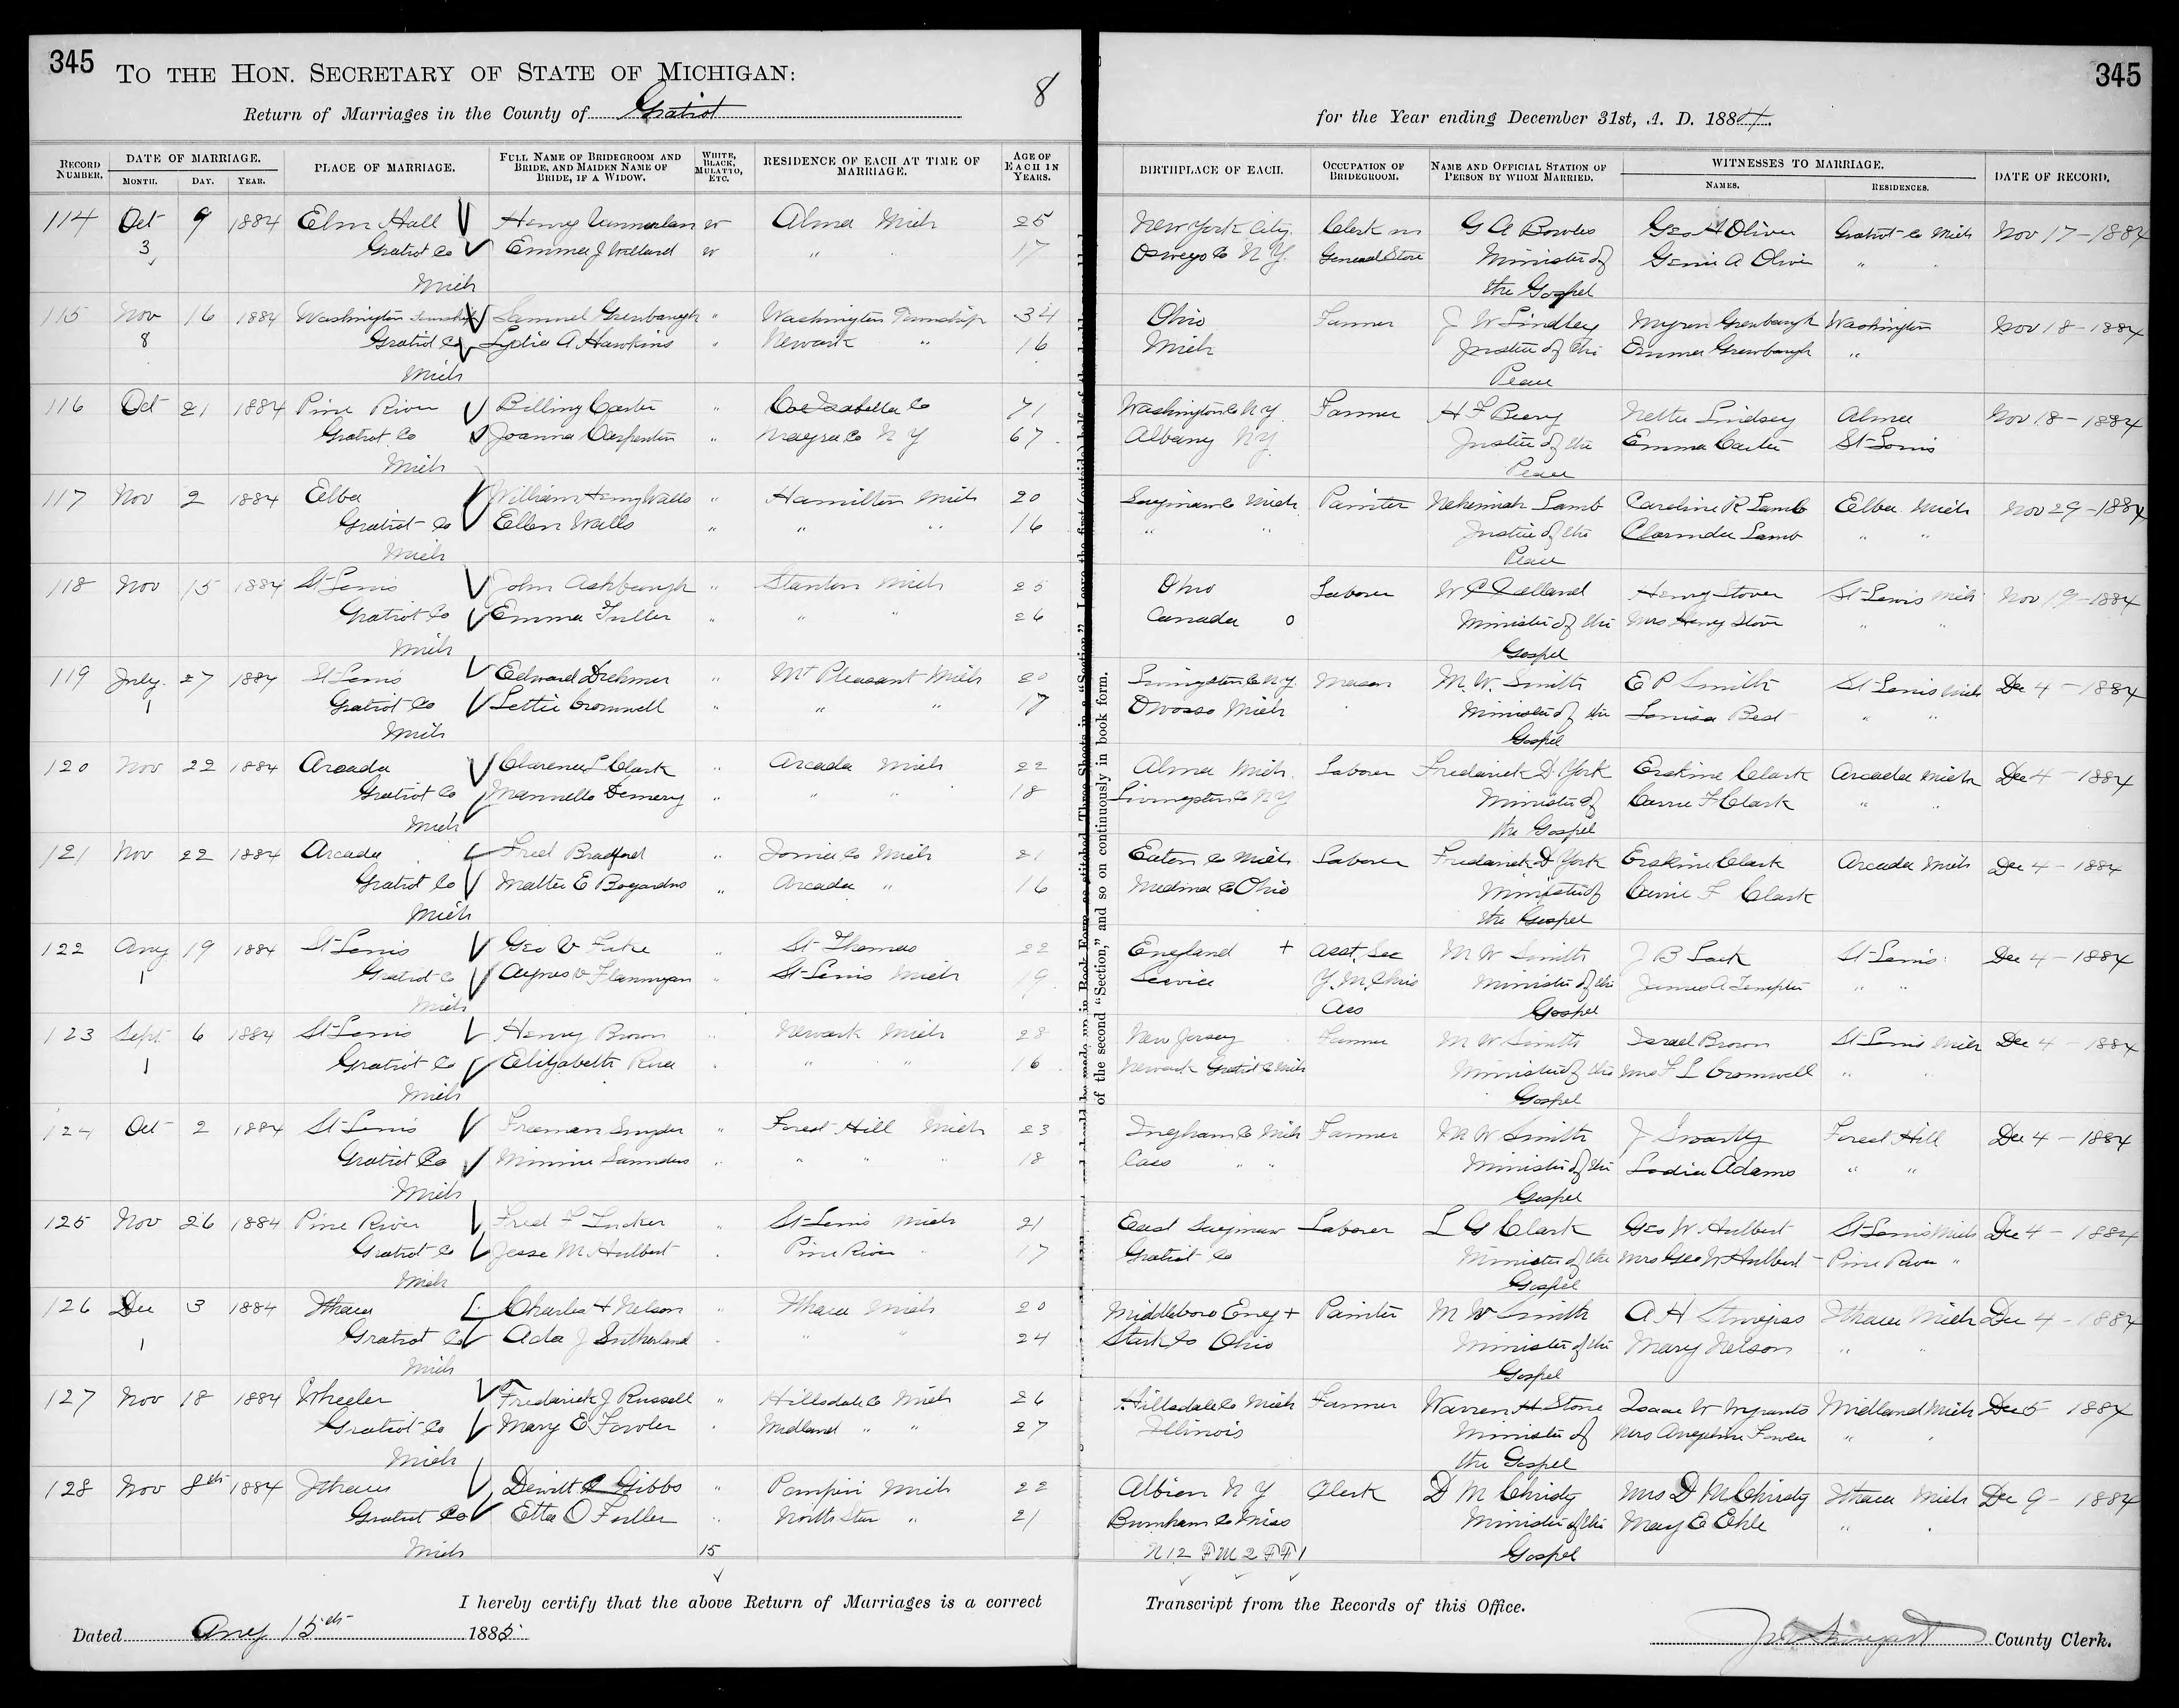 345
TO THE HON. SECRETARY OF STATE OF MICHIGAN:
8
Return of Marriages in the County of Gratiot
for the Year ending December 31st, A. D. 1884.
345
RECORD NUMBER. DATE OF MARRIAGE. MONTH. DAY. YEAR. PLACE OF MARRIAGE. FULL NAME OF BRIDEGROOM AND BRIDE, AND MAIDEN NAME OF BRIDE, IF A WIDOW. WHITE, BLACK, MULATTO, ETC. RESIDENCE OF EACH AT TIME OF MARRIAGE. AGE OF EACH IN YEARS. BIRTHPLACE OF EACH. OCCUPATION OF BRIDEGROOM. NAME AND OFFICIAL STATION OF PERSON BY WHOM MARRIED. WITNESSES TO MARRIAGE. NAMES. RESIDENCES. DATE OF RECORD.
114 Oct 9 1884 Elm Hall Henry w Alma Mich 25 New York City Clerk in G A Bowles Geo H Oliver Gratiot Co Mich Nov 17-1884
3 Gratiot Co Emma J Willard w " 17 Oswego Co N Y. General Store Minister of Genie A Oliver "
Mich the Gospel
115 Nov 16 1884 Washington Township Samuel Grenbaugh " Washington Township 34 Ohio Farmer J W Lindley Myron Grenbaugh Washington Nov 18-1884
8 Gratiot Co Lydia A Hawkins " Newark " 16 Mich Justice of the Emma Grenbaugh "
Mich Peace
116 Oct 21 1884 Pine River Billing Carter " Coe Isabella Co 71 Washington Co N Y Farmer H F Beery Nettie Lindsey Alma Nov 18-1884
Gratiot Co Joanna Carpenter " Co N Y 67 Albany N Y Justice of the Emma Carter St Louis
Mich Peace
117 Nov 2 1884 Elba William Henry Walls " Hamilton Mich 20 Saginaw Co Mich Painter Nehemiah Lamb Caroline R Lamb Elba Mich Nov 29-1884
Gratiot Co Ellen Walls " " " 16 " " Justice of the Clarinda Lamb " "
Mich Peace
118 Nov 15 1884 St Louis John Ashbaugh " Stanton Mich 25 Ohio Laborer Henry Stover St Louis Mich Nov 19-1884
Gratiot Co Emma Fuller " " " 26 Canada o Minister of the Mrs Henry Stover " "
Mich Gospel
119 July 27 1884 St Louis Edward Drehmer " Mt Pleasant Mich 20 Livingston Co N.Y. Mason M. W. Smith E P Smith St Louis Mich Dec 4-1884
1 Gratiot Co Lettie Cromwell " " " 17 Owosso Mich Minister of the Louisa Best " "
Mich Gospel
120 Nov 22 1884 Arcada Clarence L Clark " Arcada Mich 22 Alma Mich Laborer Frederick D York Erskine Clark Arcada Mich Dec 4-1884
Gratiot Co Mannello Demery " " " 18 Livingston Co N Y Minister of Carrie F Clark " "
Mich the Gospel
121 Nov 22 1884 Arcada Fred Bradford " Ionia Co Mich 21 Eaton Co Mich Laborer Frederick D York Erskine Clark Arcada Mich Dec 4-1884
Gratiot Co Mattie E Bogardus " Arcada " 16 Medina Co Ohio Minister of Carrie F Clark
Mich the Gospel
122 Aug 19 1884 St Louis Geo V " St Thomas 22 England + Asst. Sec M W Smith J B St Louis Dec 4-1884
1 Gratiot Co Agnes V Flannigan " St Louis Mich 19 Y. M. Chris Minister of the James A " "
Mich Ass Gospel
123 Sept 6 1884 St Louis Henry Brown " Newark Mich 28 New Jersey Farmer M W Smith Israel Brown St Louis Mich Dec 4-1884
1 Gratiot Co Elizabeth " " " 16 Newark Gratiot Co Mich Minister of the Mrs F L Cromwell " "
Mich Gospel
124 Oct 2 1884 St Louis Freeman Snyder " Forest Hill Mich 23 Ingham Co Mich Farmer M W Smith J Swartz Forest Hill Dec 4-1884
Gratiot Co Minnie Saunders " " " " 18 Cass " " Minister of the Adams " "
Mich Gospel
125 Nov 26 1884 Pine River Fred F Tucker " St Louis Mich 21 East Saginaw Laborer L G Clark Geo W. Hulbert St Louis Mich Dec 4-1884
Gratiot Co Jesse M. Hulbert " Pine River 17 Gratiot Co Minister of the Mrs Geo W Hulbert Pine River "
Mich Gospel
126 Dec 3 1884 Ithaca Charles H Nelson " Ithaca Mich 20 Middleboro Eng + Painter M W Smith A H Ithaca Mich Dec 4-1884
1 Gratiot Co Ada J Sutherland " " " 24 Stark Co Ohio Minister of the Mary Nelson " "
Mich Gospel
127 Nov 18 1884 Wheeler Frederick J Russell " Hillsdale Co Mich 26 Hillsdale Co Mich Farmer Warren H Stone Isaac W Wynants Midland Mich Dec 5 1884
Gratiot Co Mary E Fowler " Midland " " 27 Illinois Minister of Mrs Angeline Fowler " "
Mich the Gospel
128 Nov 8th 1884 Ithaca Dewitt C Gibbs " Mich 22 Albion N Y Clerk D M Christy Mrs D M Christy Ithaca Mich Dec 9-1884
Gratiot Co Etta O Fuller " North Star " 21 Co Minister of the Mary E Ehle " "
Mich 15 N 12 FM 2 FF 1 Gospel
of the second "Section," and so on continuously in book form.
I hereby certify that the above Return of Marriages is a correct Transcript from the Records of this Office.
Dated Aug 15th 1885
County Clerk.